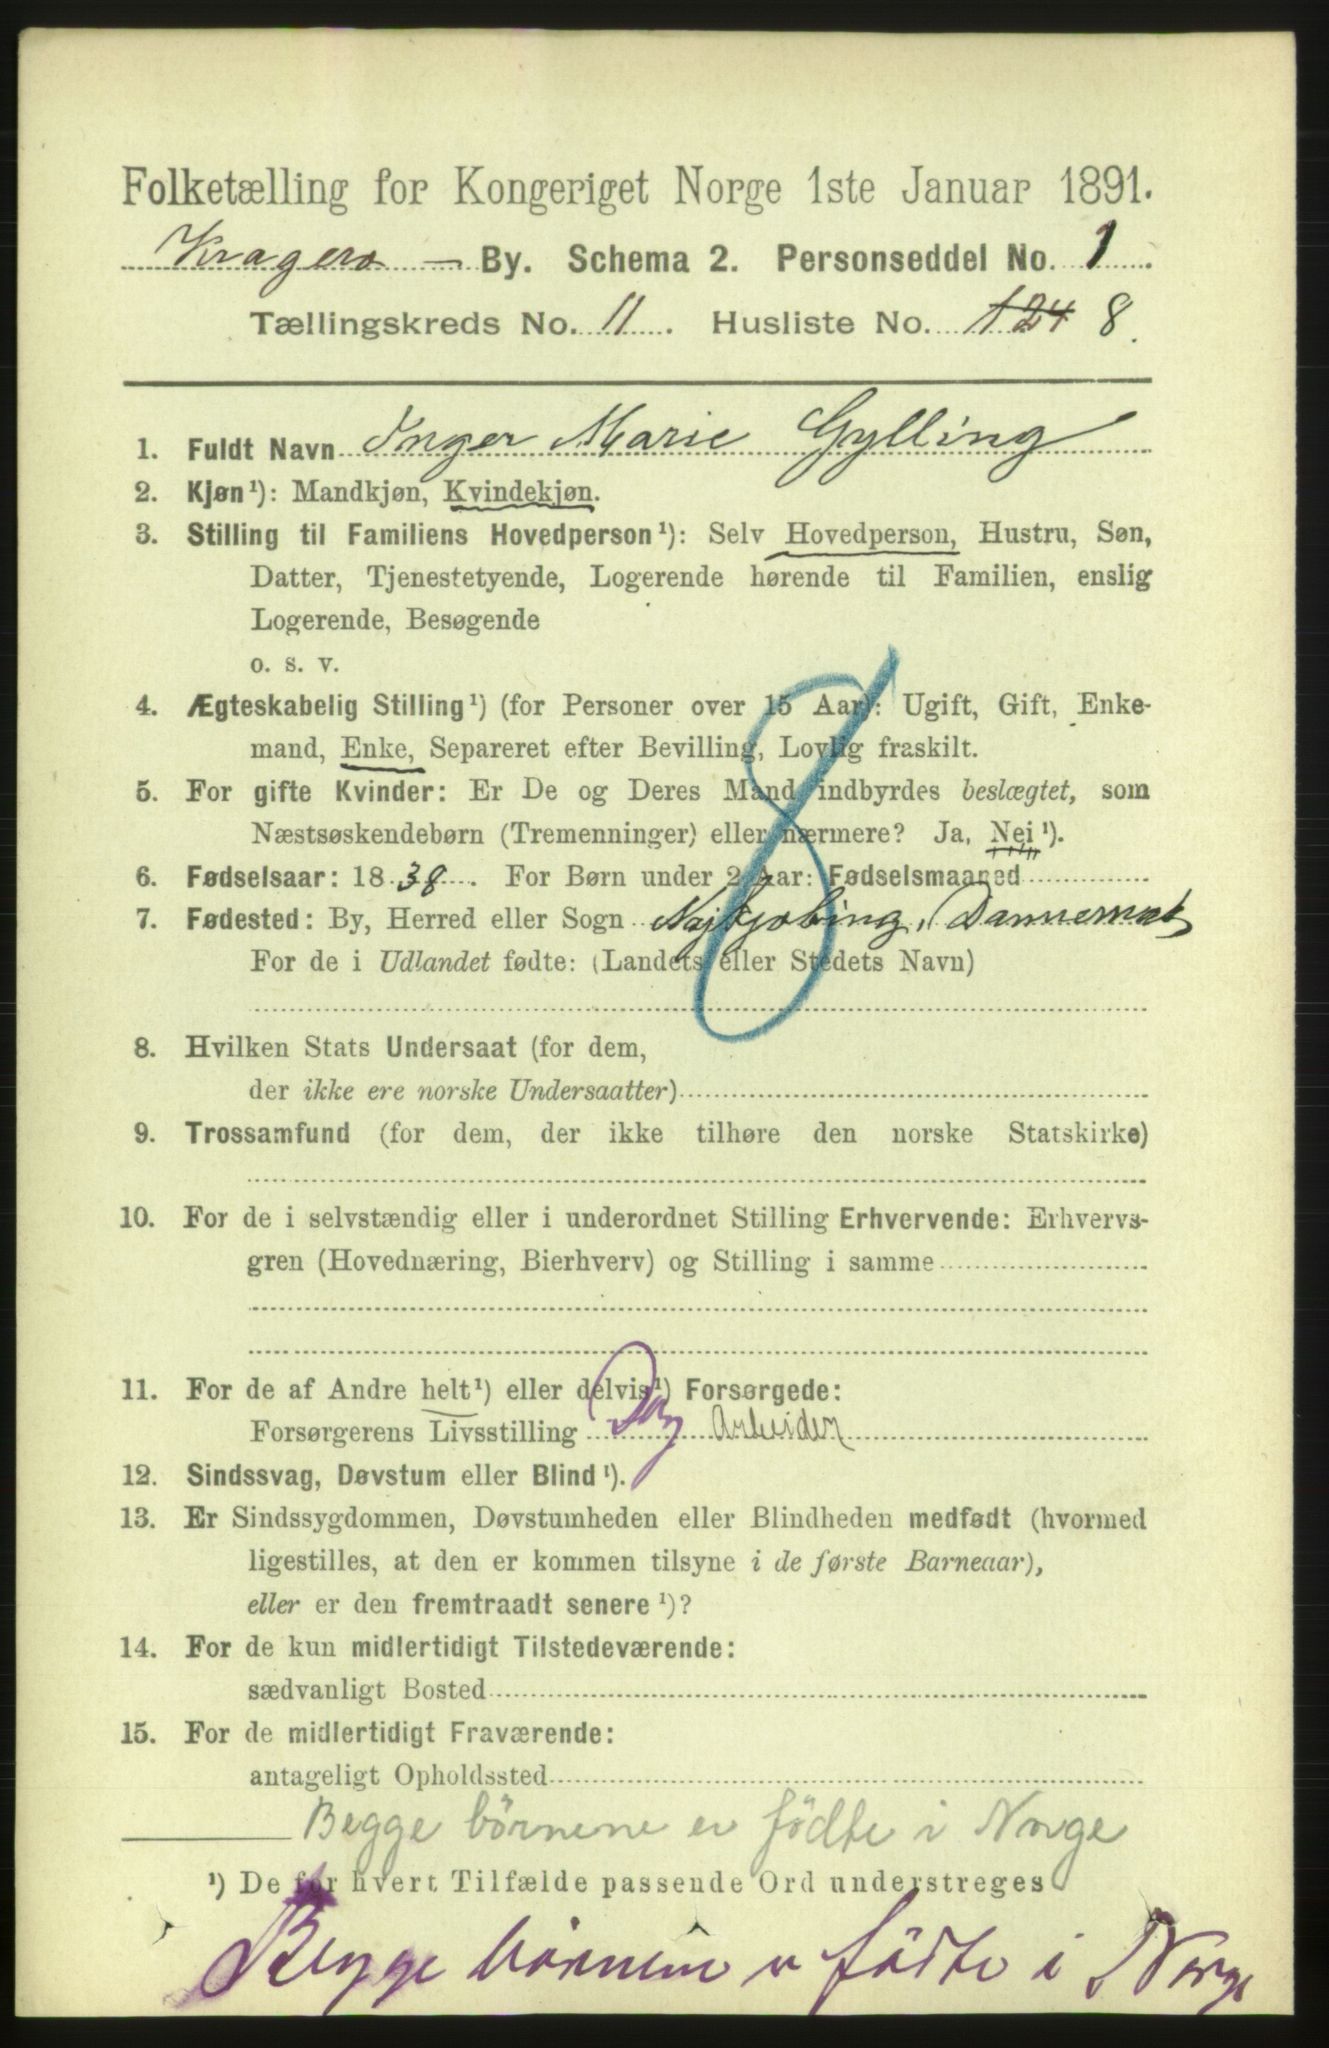 Folketælling for Kongeriget Norge 1ste Januar 1891.
Kragerø — By. Schema 2. Personseddel No. 1.
Tællingskreds No. 11. Husliste No. 124 8.
1. Fuldt Navn Inger Marie Gylling
2. Kjøn¹): Mandkjøn, Kvindekjøn.
3. Stilling til Familiens Hovedperson¹): Selv Hovedperson, Hustru, Søn,
Datter, Tjenestetyende, Logerende hørende til Familien, enslig
Logerende, Besøgende
o. s. v.
4. Ægteskabelig Stilling¹) (for Personer over 15 Aar): Ugift, Gift, Enke-
mand, Enke, Separeret efter Bevilling, Lovlig fraskilt.
5. For gifte Kvinder: Er De og Deres Mand indbyrdes beslægtet, som
Næstsøskendebørn (Tremenninger) eller nærmere? Ja, Nei¹).
6. Fødselsaar: 1838. For Børn under 2 Aar: Fødselsmaaned
7. Fødested: By, Herred eller Sogn Nÿkjøbing, Dannemark
For de i Udlandet fødte: (Landets eller Stedets Navn)
8
8. Hvilken Stats Undersaat (for dem,
der ikke ere norske Undersaatter)
9. Trossamfund (for dem, der ikke tilhøre den norske Statskirke)
10. For de i selvstændig eller i underordnet Stilling Erhvervende: Erhvervs-
gren (Hovednæring, Bierhverv) og Stilling i samme
11. For de af Andre helt¹) eller delvis¹) Forsørgede:
Forsørgerens Livsstilling Dag Arbeider
12. Sindssvag, Døvstum eller Blind¹).
13. Er Sindssygdommen, Døvstumheden eller Blindheden medfødt (hvormed
ligestilles, at den er kommen tilsyne i de første Barneaar),
eller er den fremtraadt senere¹)?
14. For de kun midlertidigt Tilstedeværende:
sædvanligt Bosted
15. For de midlertidigt Fraværende:
antageligt Opholdssted
Begge börnene er födte i Norge
¹) De for hvert Tilfælde passende Ord understreges
Begge börnene er födte i Norge